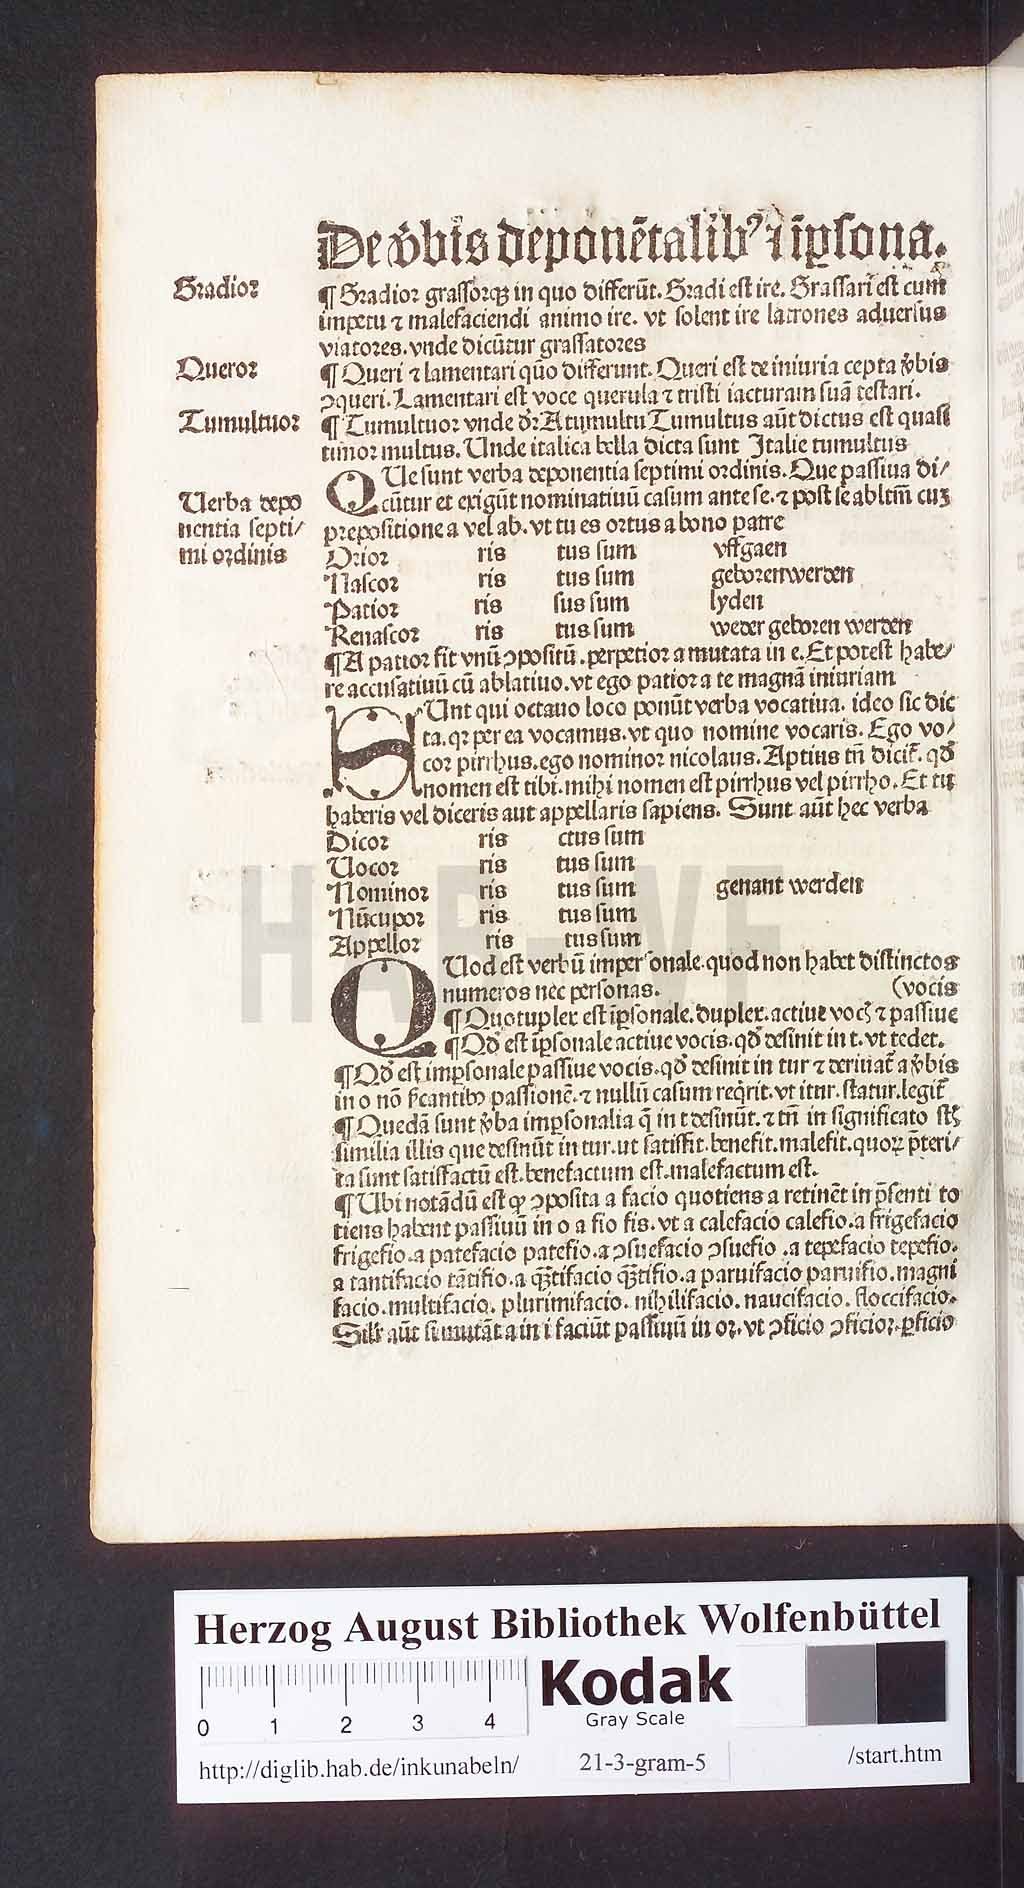 De v̓bis deponētalibꝰ ⁊ iꝑsona.
Gradior
¶ Gradior grassorqꝫ in quo differūt. Gradi est ire. Grassari est cum
impetu ⁊ malefaciendi animo ire. vt solent ire latrones aduersus
viatores. vnde dicūtur grassatores
Queror
¶ Queri ⁊ lamentari quō differunt. Queri est de iniuria cepta v̓bis
ↄqueri. Lamentari est voce querula ⁊ tristi iacturam suā testari.
Tumultuor
¶ Tumultuor vnde dr̄. A tumultu Tumultus aūt dictus est quasi
timor multus. Unde italica bella dicta sunt Italie tumultus
Verba depo
nentia septi/
mi ordinis
QUe sunt verba deponentia septimi ordinis. Que passiua di/
cūtur et exigūt nominatiuū casum ante se. ⁊ post se abltm̄ cuꝫ
prepositione a vel ab. vt tu es ortus a bono patre
Orior ris tus sum vffgaen
Nascor ris tus sum geborenwerden
Patior ris sus sum lyden
Renascor ris tus sum weder geboren werden
¶ A patior fit vnū ↄpositū. perpetior a mutata in e. Et potest habe/
re accusatiuū cū ablatiuo. vt ego patior a te magnā iniuriam
SUnt qui octauo loco ponūt verba vocatiua. ideo sic dic
ta. qꝛ per ea vocamus. vt quo nomine vocaris. Ego vo/
cor pirrhus. ego nominor nicolaus. Aptius tn̄ dicit̄. qd̓
nomen est tibi. mihi nomen est pirrhus vel pirrho. Et tu
haberis vel diceris aut appellaris sapiens. Sunt aūt hec verba
Dicor ris ctus sum
Vocor ris tus sum
Nominor ris tus sum genant werden
Nūcupor ris tus sum
Appellor ris tus sum
QUod est verbū impersonale. quod non habet distinctos
numeros nec personas. (vocis
¶ Quotuplex est iꝑsonale. duplex. actiue voc̄ ⁊ passiue
¶ Qd̓ est iꝑsonale actiue vocis. qd̓ desinit in t. vt tedet.
¶ Qd̓ est imꝑsonale passiue vocis. qd̓ desinit in tur ⁊ deriuat̄ a v̓bis
in o nō p̄cantibꝰ passionē. ⁊ nullū casum reqͥrit. vt itur. statur. legit̄
¶ Quedā sunt v̓ba imꝑsonalia q̄ in t desinūt. ⁊ tn̄ in significato st̄
similia illis que desinūt in tur. ut satisfit. benefit. malefit. quoꝝ p̄teri/
ta sunt satisfactū est. benefactum est. malefactum est.
¶ Ubi notādū est ꝙ ↄposita a facio quotiens a retinēt in p̄senti to
tiens habent passiuū in o a fio fis. vt a calefacio calefio. a frigefacio
frigefio. a patefacio patefio. a ↄsuefacio ↄsuefio .a tepefacio tepefio.
a tantifacio tātifio. a qᷓtifacio qᷓtifio. a paruifacio paruifio. magni
facio. multifacio. plurimifacio. nihilifacio. naucifacio. floccifacio.
Silr̄ aūt si mutāt a in i faciūt passiuū in or. vt ↄficio ↄficior. ꝑficio
HAB-WF
Herzog August Bibliothek Wolfenbüttel
0 1 2 3 4
Kodak
Gray Scale
http://diglib.hab.de/inkunabeln/ 21-3-gram-5 /start.htm